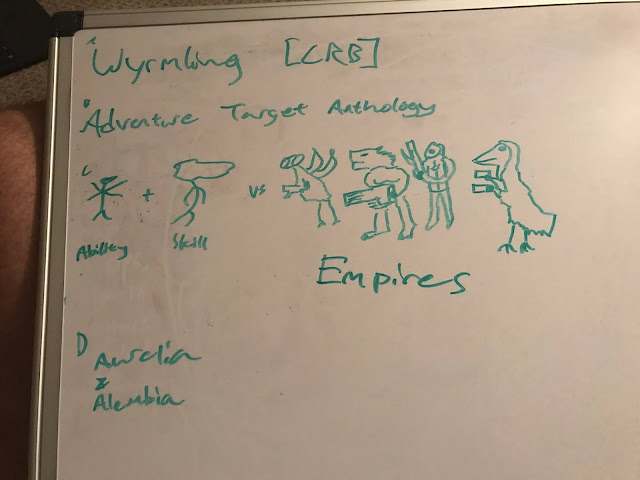 A Wyrmling [CRB]
B Adventure Target Anthology
C
+ vs
Ability Skill
Empires
D Aurelia
&
Alembia